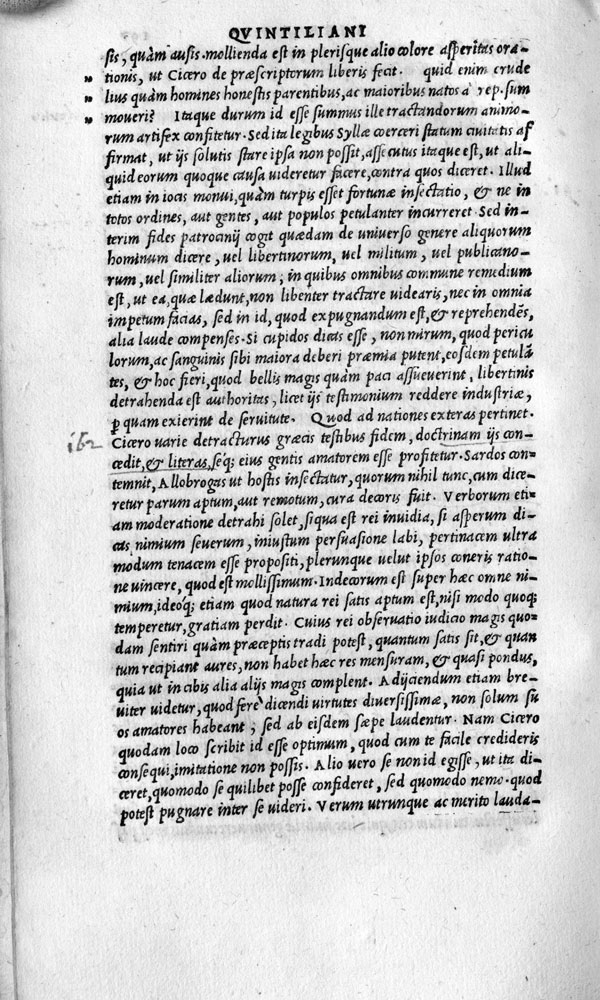 QVINTILIANI
sis, quàm ausis. mollienda est in plerisque alio colore asperitas ora-
„ tionis, ut Cicero de præscriptorum liberis fecit. quid enim crude
„ lius quàm homines honestis parentibus, ac maioribus natos à rep. sum
„ moueri? Itaque durum id esse summus ille tractandorum animo-
rum artifex confitetur. Sed ita legibus Syllæ coerceri statum ciuitatis af
firmat, ut ijs solutis stare ipsa non possit, assecutus itaque est, ut ali-
quid eorum quoque causa uideretur facere, contra quos diceret. Illud
etiam in iocis monui, quàm turpis esset fortunæ insectatio, & ne in
totos ordines, aut gentes, aut populos petulanter incurreret. Sed in-
terim fides patrocinij cogit quædam de uniuerso genere aliquorum
hominum dicere, uel libertinorum, uel militum, uel publicano-
rum, uel similiter aliorum; in quibus omnibus commune remedium
est, ut ea, quæ lædunt, non libenter tractare uidearis, nec in omnia
impetum facias, sed in id, quod expugnandum est, & reprehendẽs,
alia laude compenses. Si cupidos dicas esse, non mirum, quod pericu
lorum, ac sanguinis sibi maiora deberi præmia putent, eosdem petulã
tes, & hoc fieri, quod bellis magis quàm paci assueuerint, libertinis
detrahenda est authoritas, licet ijs testimonium reddere industriæ,
ꝑ quam exierint de seruitute. Quod ad nationes exteras pertinet.
Cicero uarie detracturus græcis testibus fidem, doctrinam ijs con-
cedit, & literas, seq; eius gentis amatorem esse profitetur. Sardos con-
temnit, Allobrogas ut hostis insectatur, quorum nihil tunc, cum dice-
retur parum aptum, aut remotum, cura decoris fuit. Verborum eti-
am moderatione detrahi solet, siqua est rei inuidia, si asperum di-
cas nimium seuerum, iniustum persuasione labi, pertinacem ultra
modum tenacem esse propositi, plerunque uelut ipsos coneris ratio-
ne uincere, quod est mollissimum. Indecorum est super hæc omne ni-
mium, ideoq; etiam quod natura rei satis aptum est, nisi modo quoq;
temperetur, gratiam perdit. Cuius rei obseruatio iudicio magis quo-
dam sentiri quàm præceptis tradi potest, quantum satis sit, & quan
tum recipiant aures, non habet hæc res mensuram, & quasi pondus,
quia ut in cibis alia alijs magis complent. Adijciendum etiam bre-
uiter uidetur, quod ferè dicendi uirtutes diuersissimæ, non solum su
os amatores habeant, sed ab eisdem sæpe laudentur. Nam Cicero
quodam loco scribit id esse optimum, quod cum te facile credideris
consequi, imitatione non possis. Alio uero se non id egisse, ut ita di-
ceret, quomodo se quilibet posse confideret, sed quomodo nemo. quod
potest pugnare inter se uideri. Verum utrunque ac merito lauda-